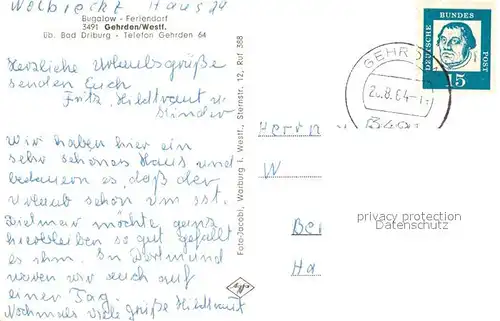 Haus 24
Bugalow - Feriendorf
3491 Gehrden/Westf.
üb. Bad Driburg - Telefon Gehrden 64
Herzliche Urlaubsgrüße
senden Euch
Fritz, Hildtraut u
Kinder
Wir haben hier ein
sehr schönes Haus und
bedauern es, daß der
Urlaub schon um ist.
Dietmar möchte ganz
hierbleiben so gut gefällt
es ihm. In Dortmund
waren wir auch auf
einen Tag.
Nochmals viele Grüße Hildtraut
Foto-Jacobi, Warburg i. Westf., Sternstr. 12, Ruf 388
Agfa
DEUTSCHE BUNDESPOST
15
GEHRDEN
26.8.64
349
Herrn
W
Bei
Ha
privacy protection
Datenschutz